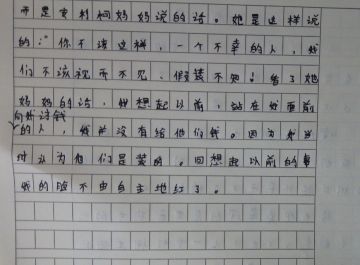 而是安利柯妈妈说的话。她是这样说
的:“你不该这样,一个不幸的人,我
们不该视而不见、假装不知!看了她
妈妈的话,我想起以前,站在我面前
向我讨钱
的人,我并没有给他们钱。因为我当
时认为他们是装的。回想起以前的事
我的脸不由自主地红了。